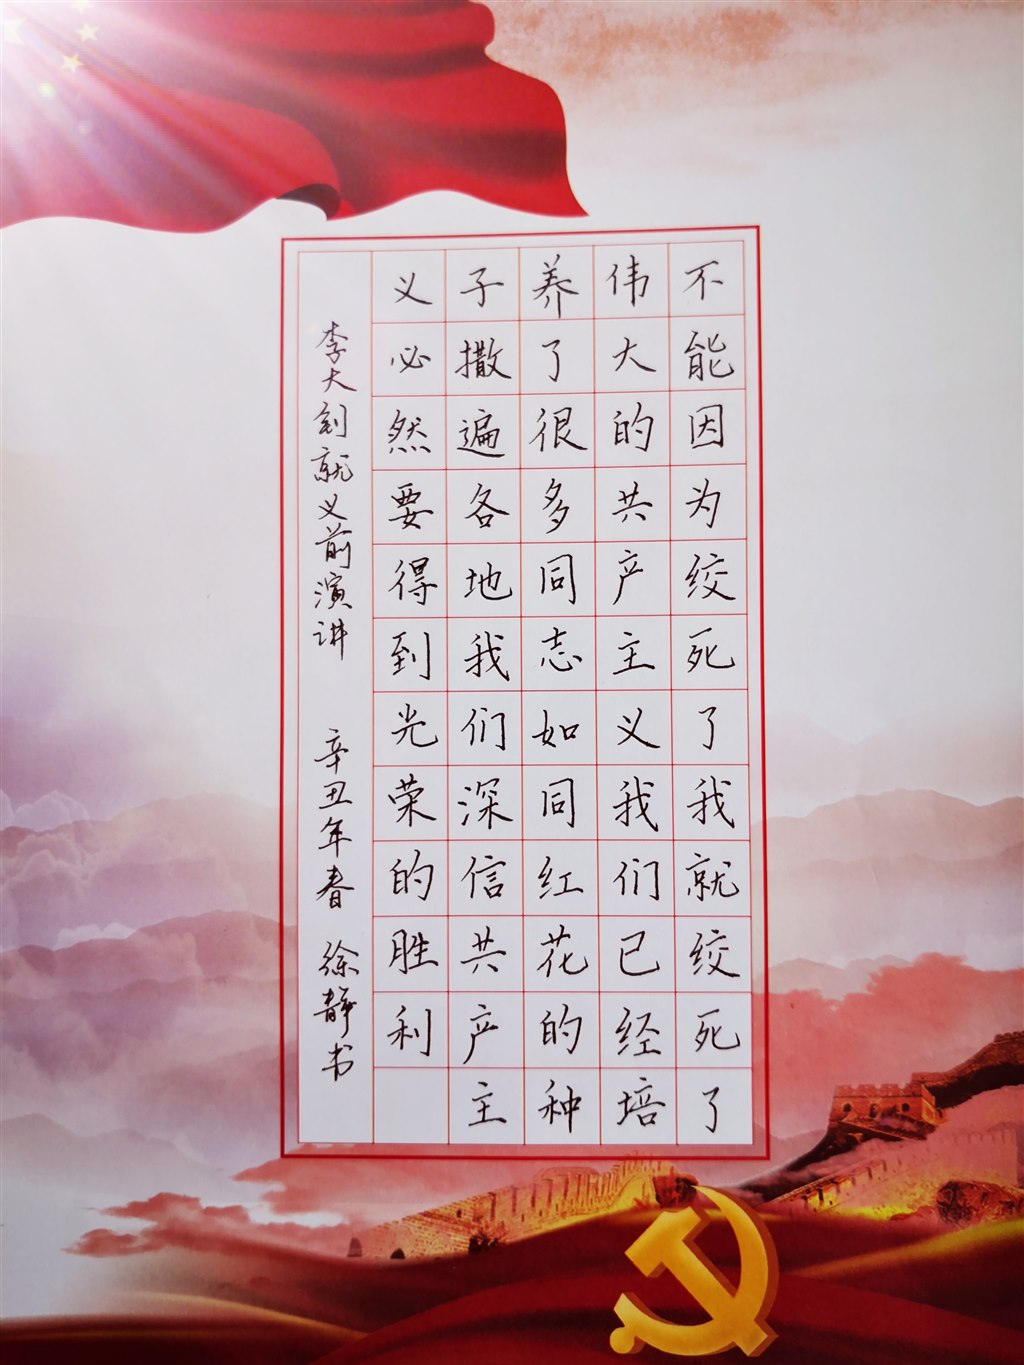 不能因为绞死了我就绞死了
伟大的共产主义我们已经培
养了很多同志如同红花的种
子撒遍各地我们深信共产主
义必然要得到光荣的胜利
李大钊就义前演讲 辛丑年春 徐静书